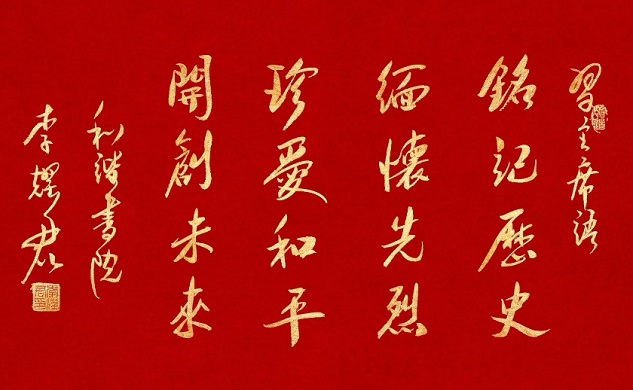 習主席語
銘記歷史
緬懷先烈
珍愛和平
開創未來
和谐書院
李耀君